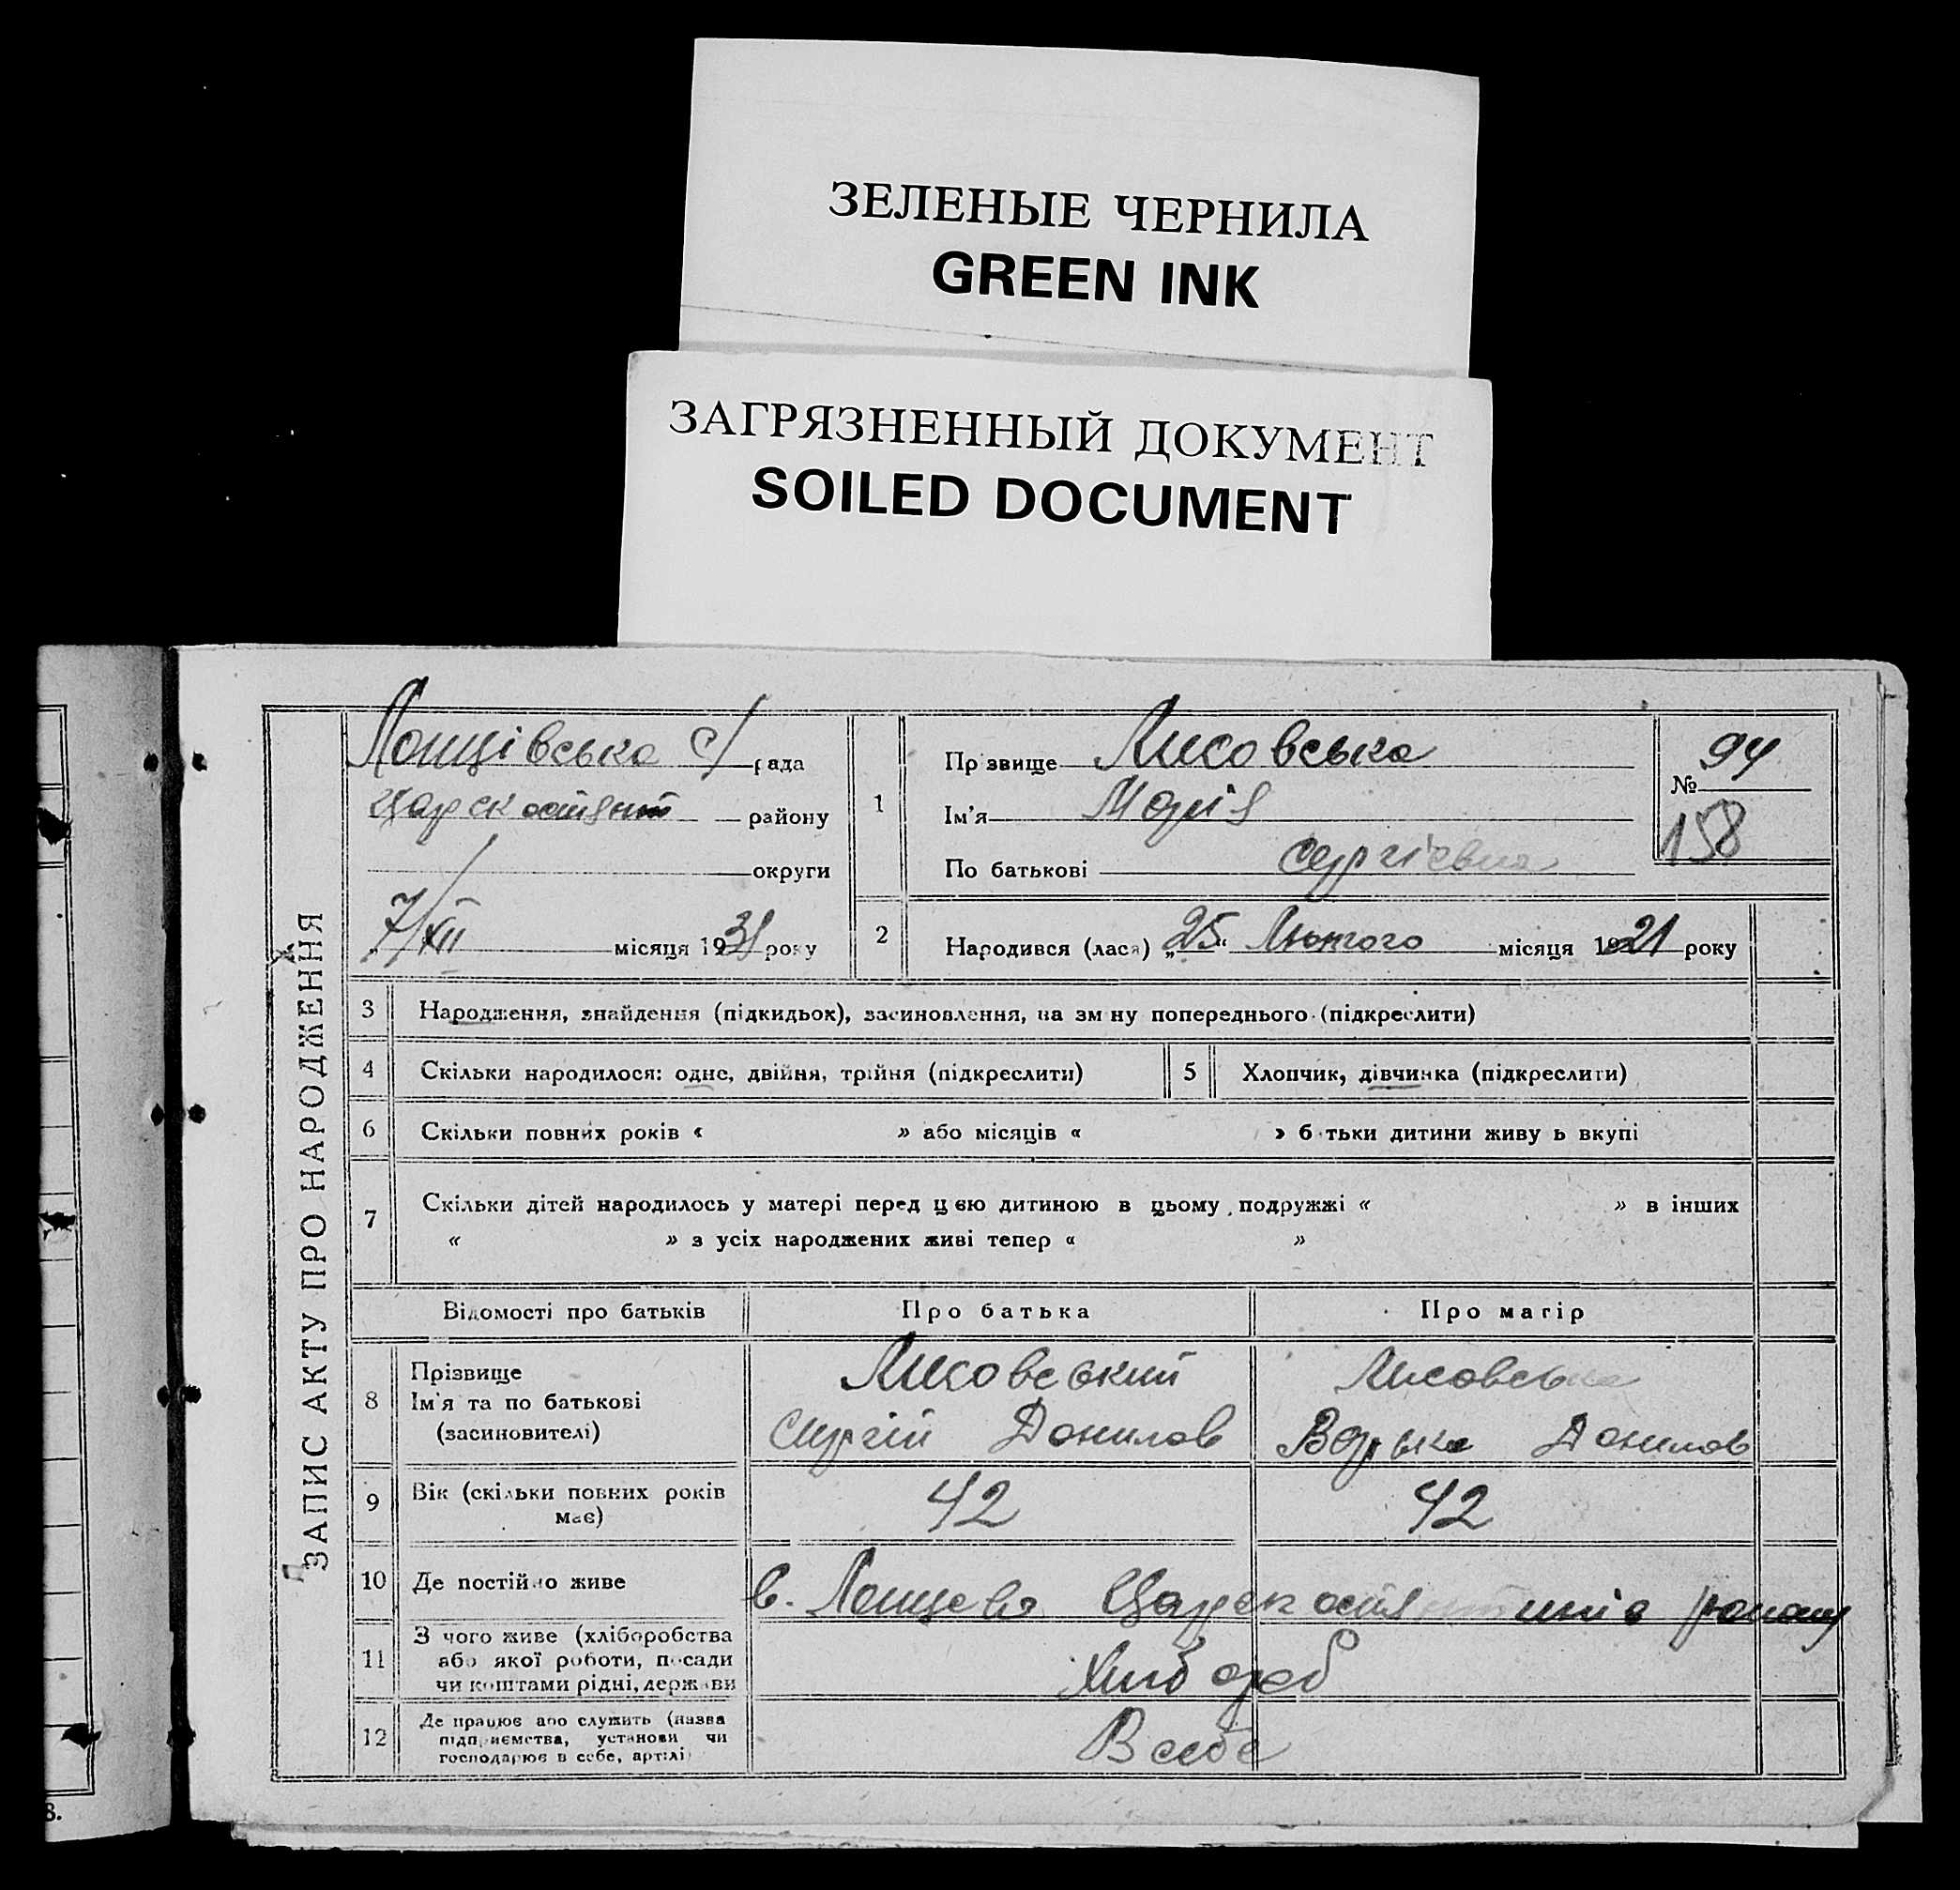 ЗЕЛЕНЫЕ ЧЕРНИЛА
GREEN INK
ЗАГРЯЗНЕННЫЙ ДОКУМЕНТ
SOILED DOCUMENT
ЗАПИС АКТУ ПРО НАРОДЖЕННЯ
Лонцівська с/ рада
району
округи
7/XII місяця 1931 року
1
Прізвище Лисовська
Ім'я Марія
По батькові Сергієвна
№ 94
158
2 Народився (лася) „25“ Лютого місяця 1921 року
3 Народження, знайдення (підкидьок), засиновлення, на зміну попереднього (підкреслити)
4 Скільки народилося: одне, двійня, трійня (підкреслити) 5 Хлопчик, дівчинка (підкреслити)
6 Скільки повних років « » або місяців « » батьки дитини живуть вкупі
7 Скільки дітей народилось у матері перед цією дитиною в цьому подружжі « » в інших
« » з усіх народжених живі тепер « »
Відомості про батьків Про батька Про матір
8 Прізвище
Ім'я та по батькові
(засиновителі)
Лисовський
Сергій Данилов
Лисовська
Варька Данилов
9 Вік (скільки повних років
має)
42 42
10 Де постійно живе в. району
11 З чого живе (хліборобства
або якої роботи, посади
чи коштами рідні, держави
Хлібороб
12 Де працює або служить (назва
підприємства, установи чи
господарює в себе, артілі)
В себе
8.